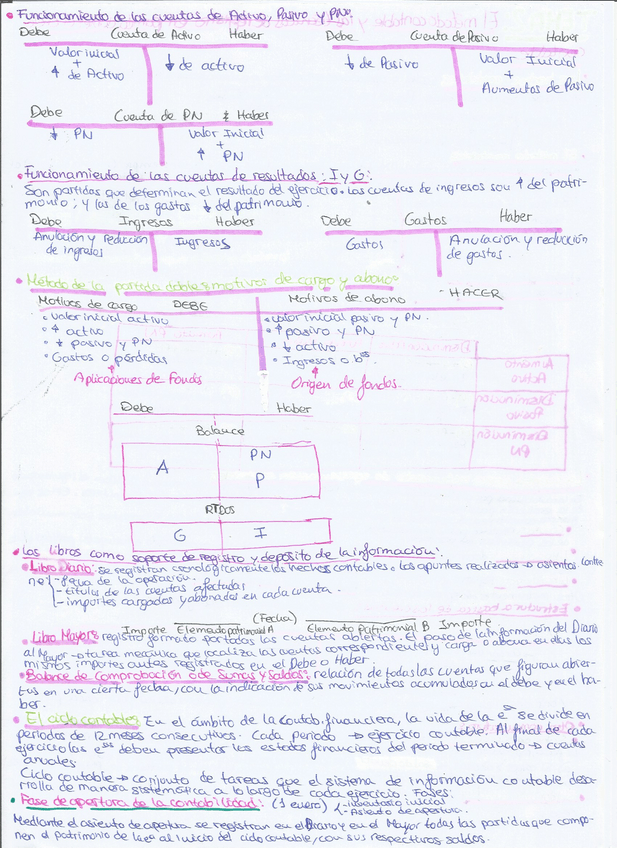 • Funcionamiento de las cuentas de Activo, Pasivo y PN:
Debe Cuenta de Activo Haber
Valor inicial
+
↑ de Activo
↓ de activo
Debe Cuenta de Pasivo Haber
↓ de Pasivo
Valor Inicial
+
Aumentos de Pasivo
Debe Cuenta de PN Haber
↓ PN
Valor Inicial
+
↑ PN
• Funcionamiento de las cuentas de resultados: I y G:
Son partidas que determinan el resultado del ejercicio. Las cuentas de ingresos son ↑ del patri-
monio; y las de los gastos ↓ del patrimonio.
Debe Ingresos Haber
Anulación y reducción
de ingresos
Ingresos
Debe Gastos Haber
Gastos
Anulación y reducción
de gastos.
• Método de la partida doble: motivos de cargo y abono:
Motivos de cargo DEBE
Motivos de abono - HACER
• Valor inicial activo
• ↑ activo
• ↓ pasivo y PN
• Gastos o pérdidas
• Valor inicial pasivo y PN.
• ↑ pasivo y PN
• ↓ activo
• Ingresos o bos
Aplicaciones de Fondos
Origen de fondos.
Debe Haber
Balance
A
PN
P
RTDOS
G I
• Los libros como soporte de registro y depósito de la información:
• Libro Diario: se registran cronológicamente los hechos contables. Los apuntes realizados → asientos contie
nen: - fecha de la operación.
- títulos de las cuentas afectadas
- importes cargados y abonados en cada cuenta.
(Fecha)
Importe Elemento patrimonial A Elemento patrimonial B Importe
• Libro Mayor: registro formato por todas las cuentas abiertas. El paso de la información del Diario
al Mayor → tarea mecánica que localiza las cuentas correspondiente y carga o abona en ellas los
mismos importes antes registrados en el Debe o Haber.
• Balance de Comprobación o de Sumas y Saldos: relación de todas las cuentas que figuran abier-
tas en una cierta fecha, con la indicación de sus movimientos acumulados en el debe y en el ha-
ber.
• El ciclo contable: En el ámbito de la contab. financiera, la vida de la esa se divide en
periodos de 12 meses consecutivos. Cada periodo → ejercicio contable. Al final de cada
ejercicio las esas deben presentar los estados financieros del periodo terminado → cuentas
anuales
Ciclo contable → conjunto de tareas que el sistema de información contable desa-
rrolla de manera sistemática a lo largo de cada ejercicio. Fases:
• Fase de apertura de la contabilidad: (1 enero) - inventario inicial
- Asiento de apertura.
Mediante el asiento de apertura se registran en el Diario y en el Mayor todas las partidas que compo-
nen el patrimonio de la esa al inicio del ciclo contable, con sus respectivos saldos.